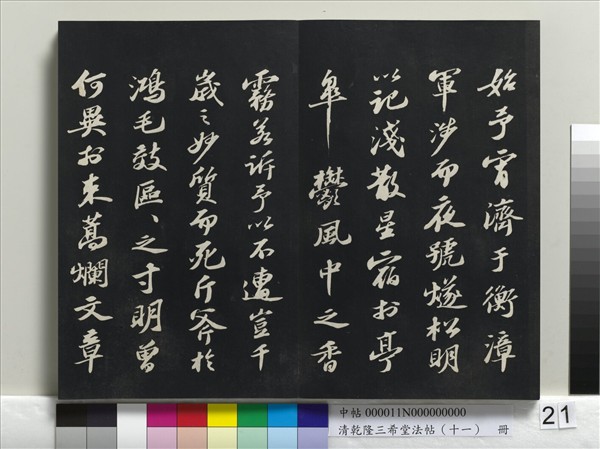 始予宵濟于衡漳
軍涉而夜號燧松明
以記淺散星宿於亭
皐鬱風中之香
霧若訴予以不遭豈千
歲之妙質而死斤斧於
鴻毛效區區之寸明曽
何異於束蒿爛文章
中帖 000011N000000000
清乾隆三希堂法帖（十一） 冊
21